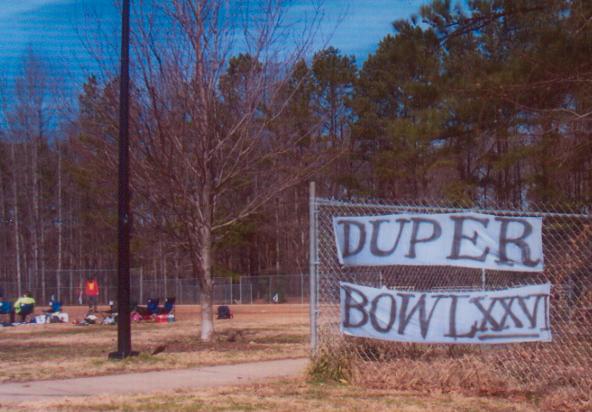 DUPER
BOWL XXVI